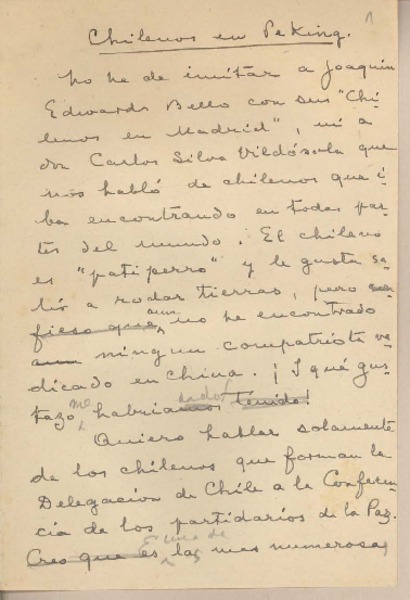 1
Chilenos en Peking.
No he de imitar a Joaquín
Edwards Bello con sus "Chi-
lenos en Madrid", ni a
don Carlos Silva Vildósola que
nos habló de chilenos que i-
ba encontrando en todas par-
tes del mundo. El chileno
es "patiperro" y le gusta sa-
lir a rodar tierras, pero
fieso que aun no he encontrado
aun ningun compatriota ra-
dicado en China. ¡I qué gus-
tazo me habria dado! tenido!
Quiero hablar solamente
de los chilenos que forman la
Delegacion de Chile a la Conferen-
cia de los partidarios de la Paz.
Creo que es una de las mas numerosas